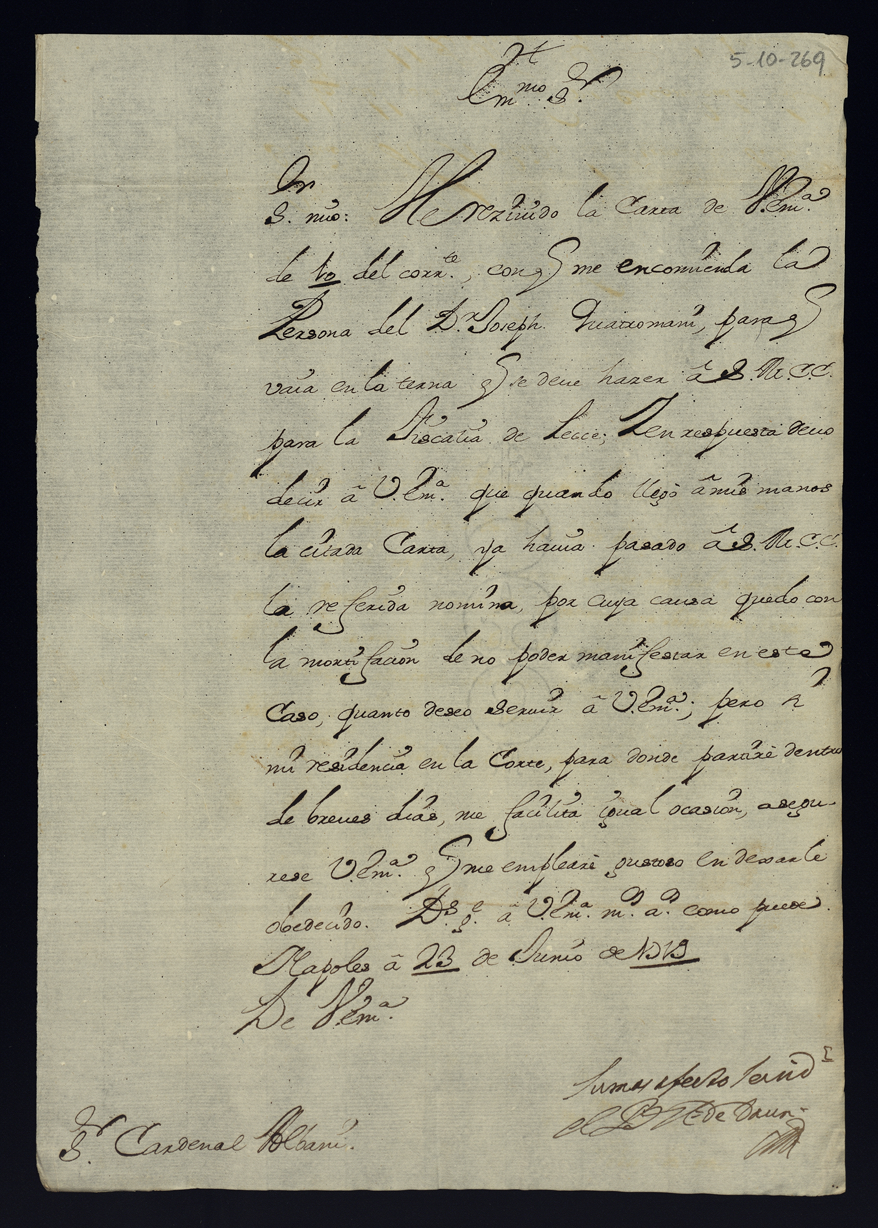 5-10-269
Em.mo S.r
S.r mio: He reziuido la Carta de V. Em.a
de 10 del corr.te, con q me encomienda la
Persona del D.r Joseph Quatromani, para q
vaia en la terna q se deue hazer â S. M. C. C.
para la Fiscalia de Lecce; Y en respuesta deuo
decir â V. Em.a que quando llegò â mis manos
la citada Carta, ya hauia pasado â S. M. C. C.
la referida nomina, por cuya causa quedo con
la mortificacion de no poder manifestar en este
Caso, quanto deseo seruir â V. Em.a; pero
mi residencia en la Corte, para donde partirè dentro
de breues dias, me facilita igual ocasion, asegu-
rese V. Em.a q me emplearè gustoso en dexarle
obedecido. D.s g.e â V. Em.a m.s a.s como puede.
Napoles â 23 de Junio de
De V. Em.a
su mas afecto seruid.r
el de Daun
S.r Cardenal Albani.